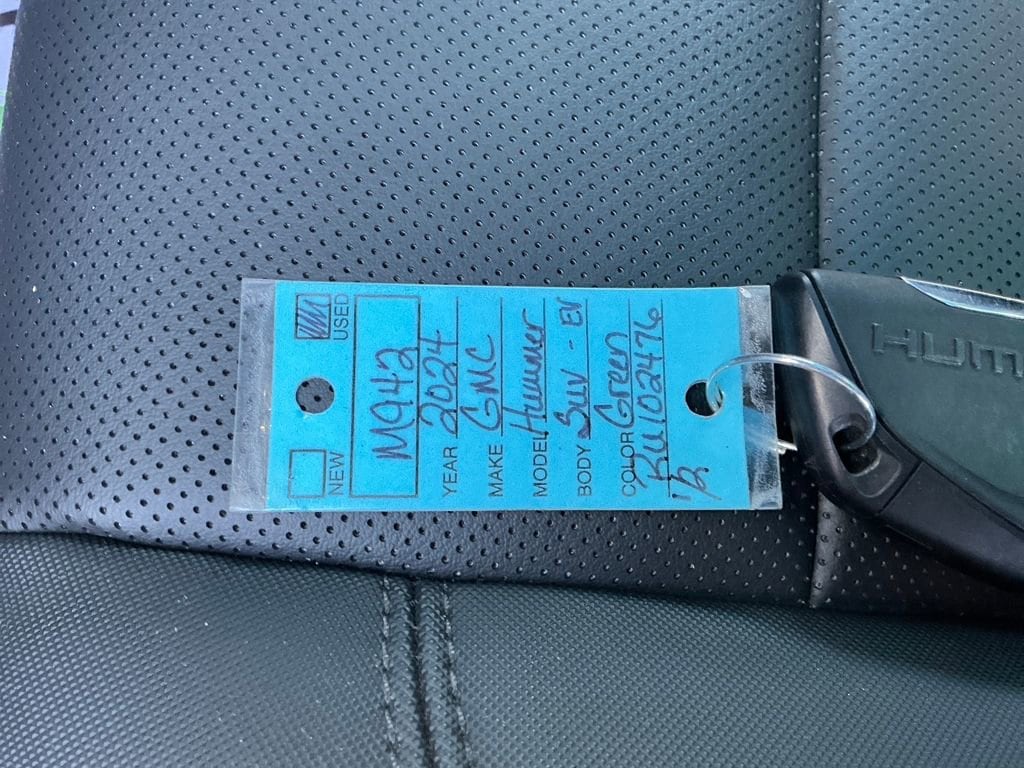 NEW USED
M942
YEAR 2024
MAKE GMC
MODEL Hummer
BODY Suv - EV
COLOR Green
RU102476
1/2
HUM